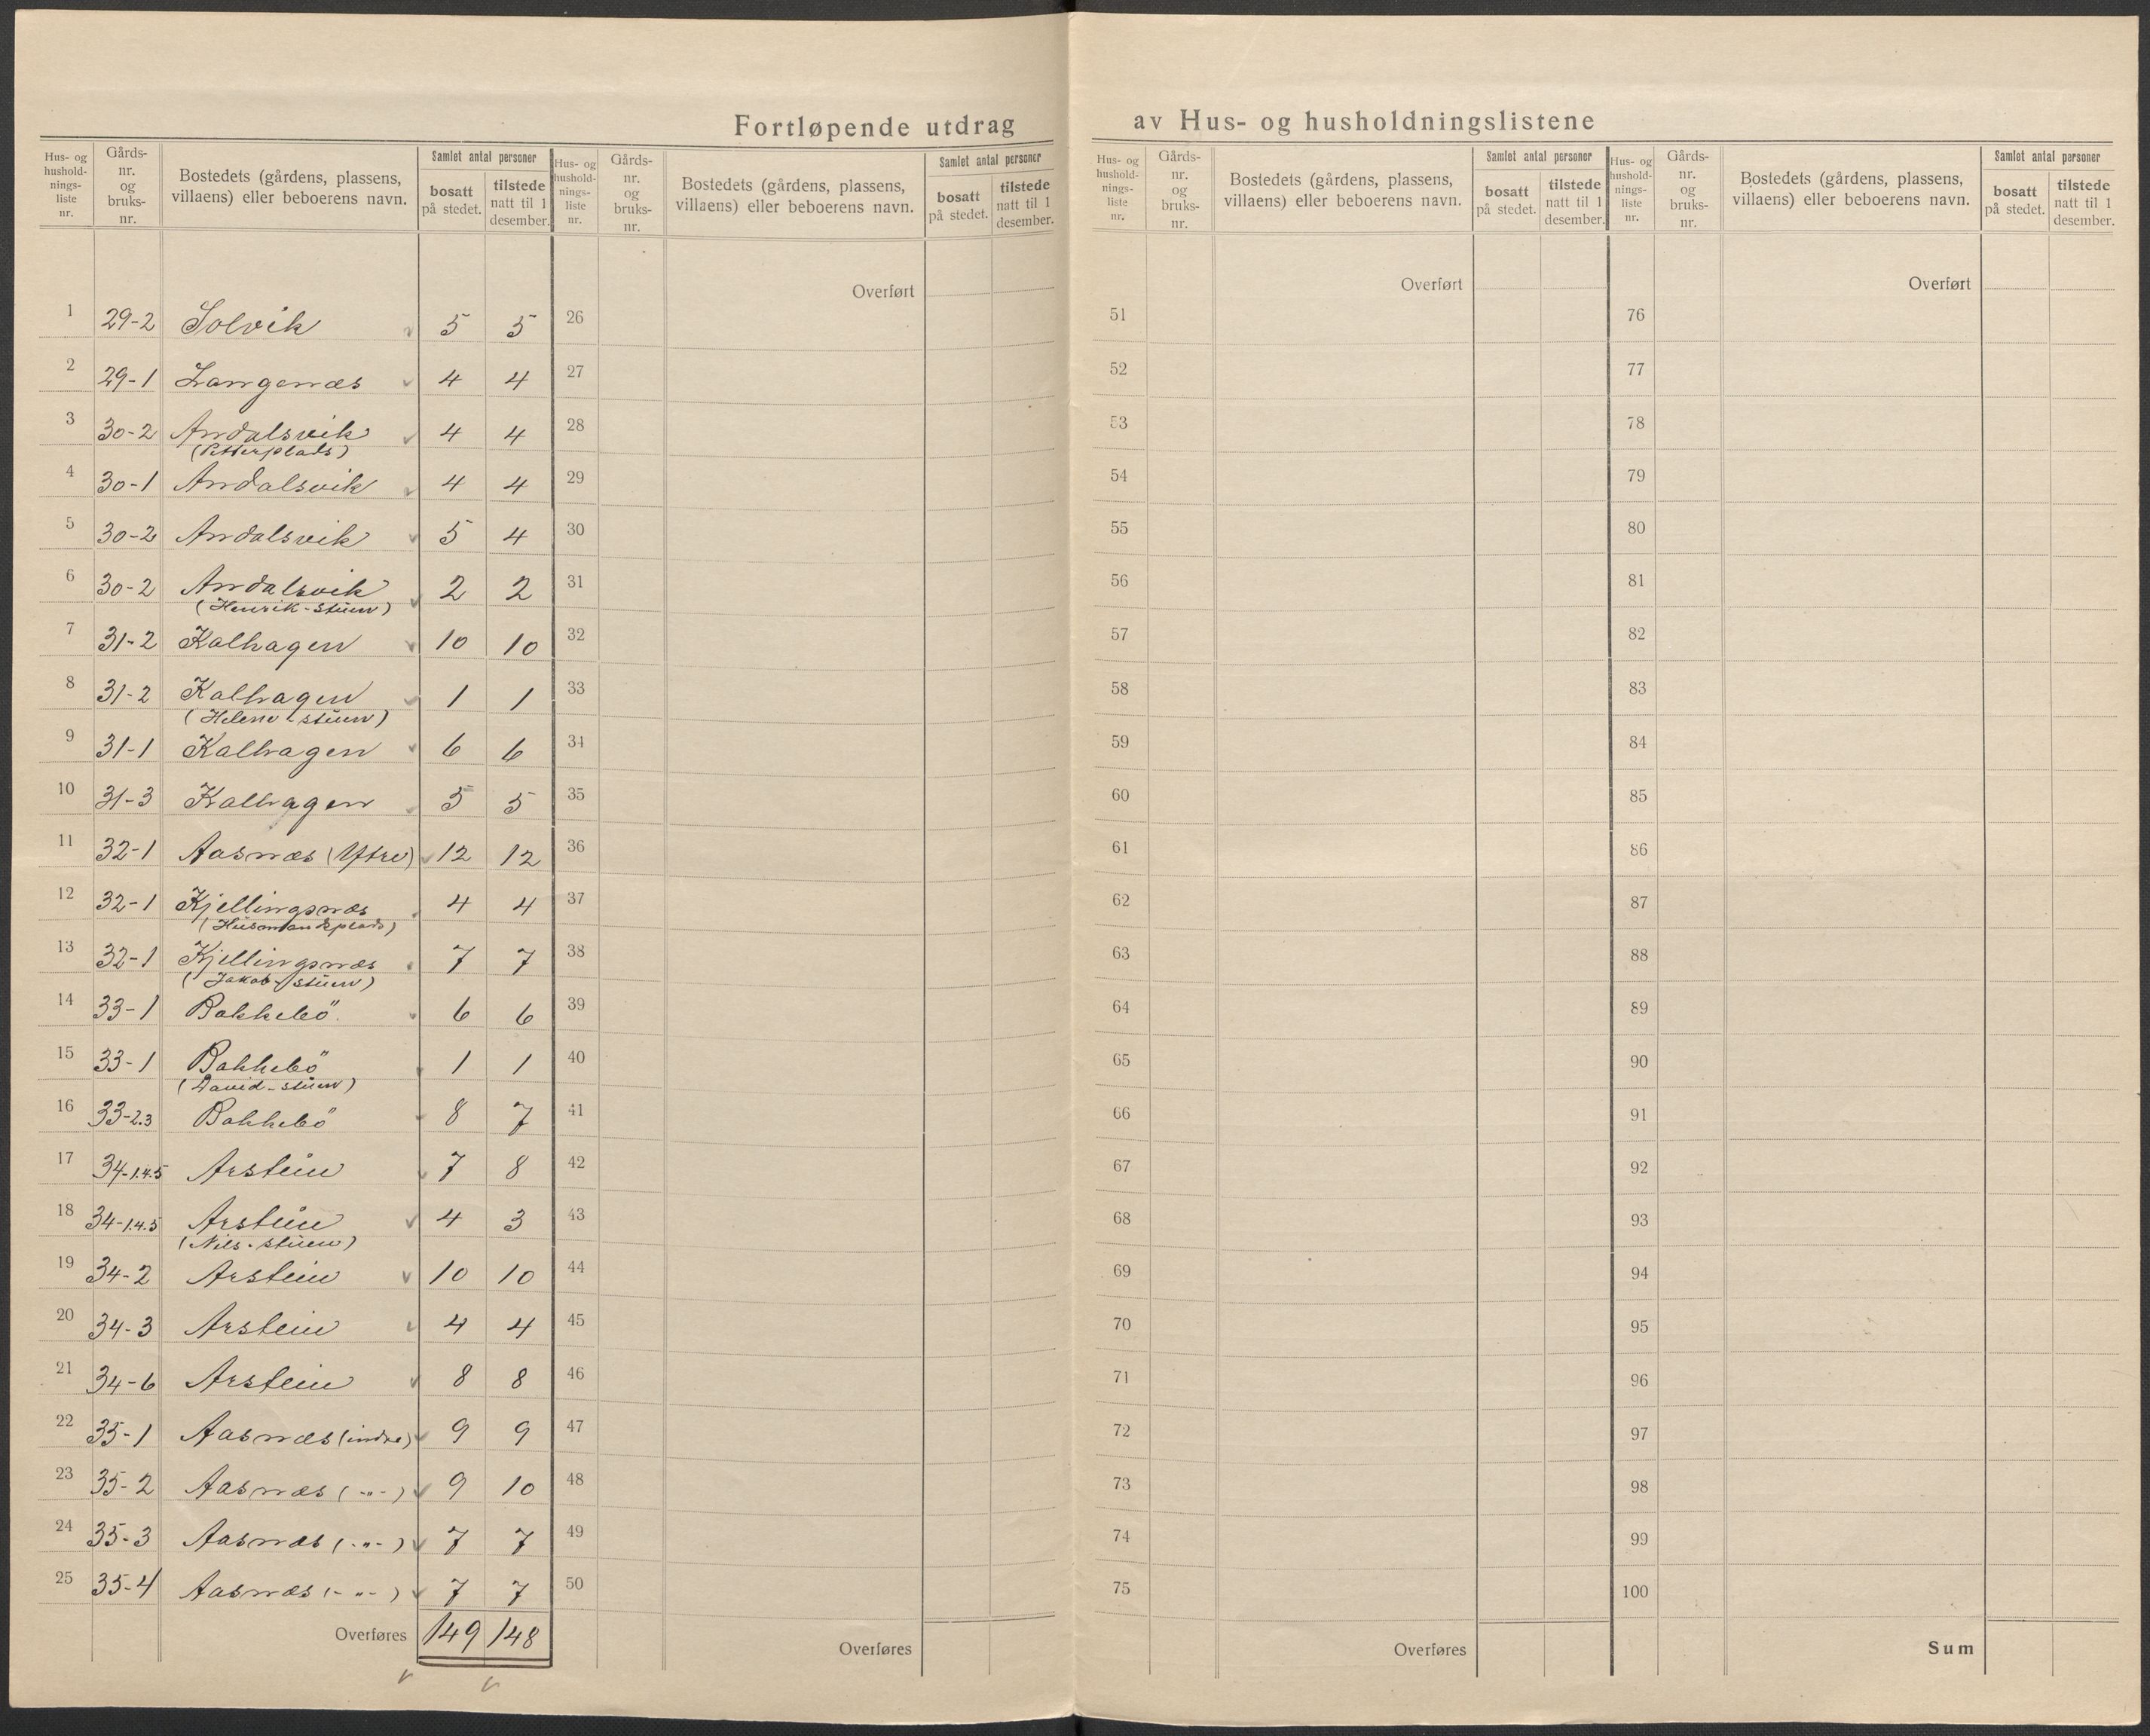 Fortløpende utdrag av Hus- og husholdningslistene
Hus- og hushold-nings-liste nr. Gårds-nr. og bruks-nr. Bostedets (gårdens, plassens, villaens) eller beboerens navn. Samlet antal personer bosatt på stedet. tilstede natt til 1 desember.
Hus- og hushold-nings-liste nr. Gårds-nr. og bruks-nr. Bostedets (gårdens, plassens, villaens) eller beboerens navn. Samlet antal personer bosatt på stedet. tilstede natt til 1 desember.
Hus- og hushold-nings-liste nr. Gårds-nr. og bruks-nr. Bostedets (gårdens, plassens, villaens) eller beboerens navn. Samlet antal personer bosatt på stedet. tilstede natt til 1 desember.
Hus- og hushold-nings-liste nr. Gårds-nr. og bruks-nr. Bostedets (gårdens, plassens, villaens) eller beboerens navn. Samlet antal personer bosatt på stedet. tilstede natt til 1 desember.
Overført Overført Overført
1 29-2 Solvik 5 5 26 51 76
2 29-1 Langenæs 4 4 27 52 77
3 30-2 Andalsvik 4 4 28 53 78
(Petterplads)
4 30-1 Andalsvik 4 4 29 54 79
5 30-2 Andalsvik 5 4 30 55 80
6 30-2 Andalsvik 2 2 31 56 81
(Henrik-stuen)
7 31-2 Kalhagen 10 10 32 57 82
8 31-2 Kalhagen 1 1 33 58 83
(Helene-stuen)
9 31-1 Kalhagen 6 6 34 59 84
10 31-3 Kalhagen 5 5 35 60 85
11 32-1 Aasnæs (Ytre) 12 12 36 61 86
12 32-1 Kjellingsnæs 4 4 37 62 87
(Husmandsplads)
13 32-1 Kjellingsnæs 7 7 38 63 88
(Jakob-stuen)
14 33-1 Bakkebö. 6 6 39 64 89
15 33-1 Bakkebö 1 1 40 65 90
(David-stuen)
16 33-2.3 Bakkebö 8 7 41 66 91
17 34-1.4.5 Arstein 7 8 42 67 92
18 34-1.4.5 Arstein 4 3 43 68 93
(Nils-stuen)
19 34-2 Arstein 10 10 44 69 94
20 34-3 Arstein 4 4 45 70 95
21 34-6 Arstein 8 8 46 71 96
22 35-1 Aasnæs (indre) 9 9 47 72 97
23 35-2 Aasnæs (-"-) 9 10 48 73 98
24 35-3 Aasnæs (-"-) 7 7 49 74 99
25 35-4 Aasnæs (-"-) 7 7 50 75 100
Overføres 149 148 Overføres Overføres Sum